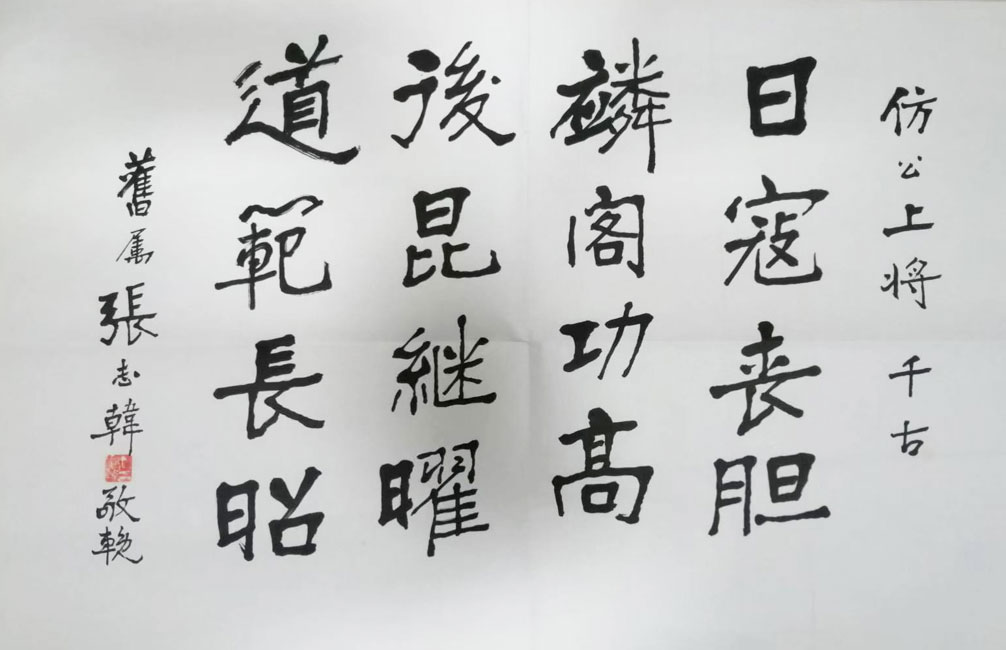 仿公上将 千古
日寇丧胆
麟阁功高
後昆继曜
道範長昭
舊属張志韓敬輓